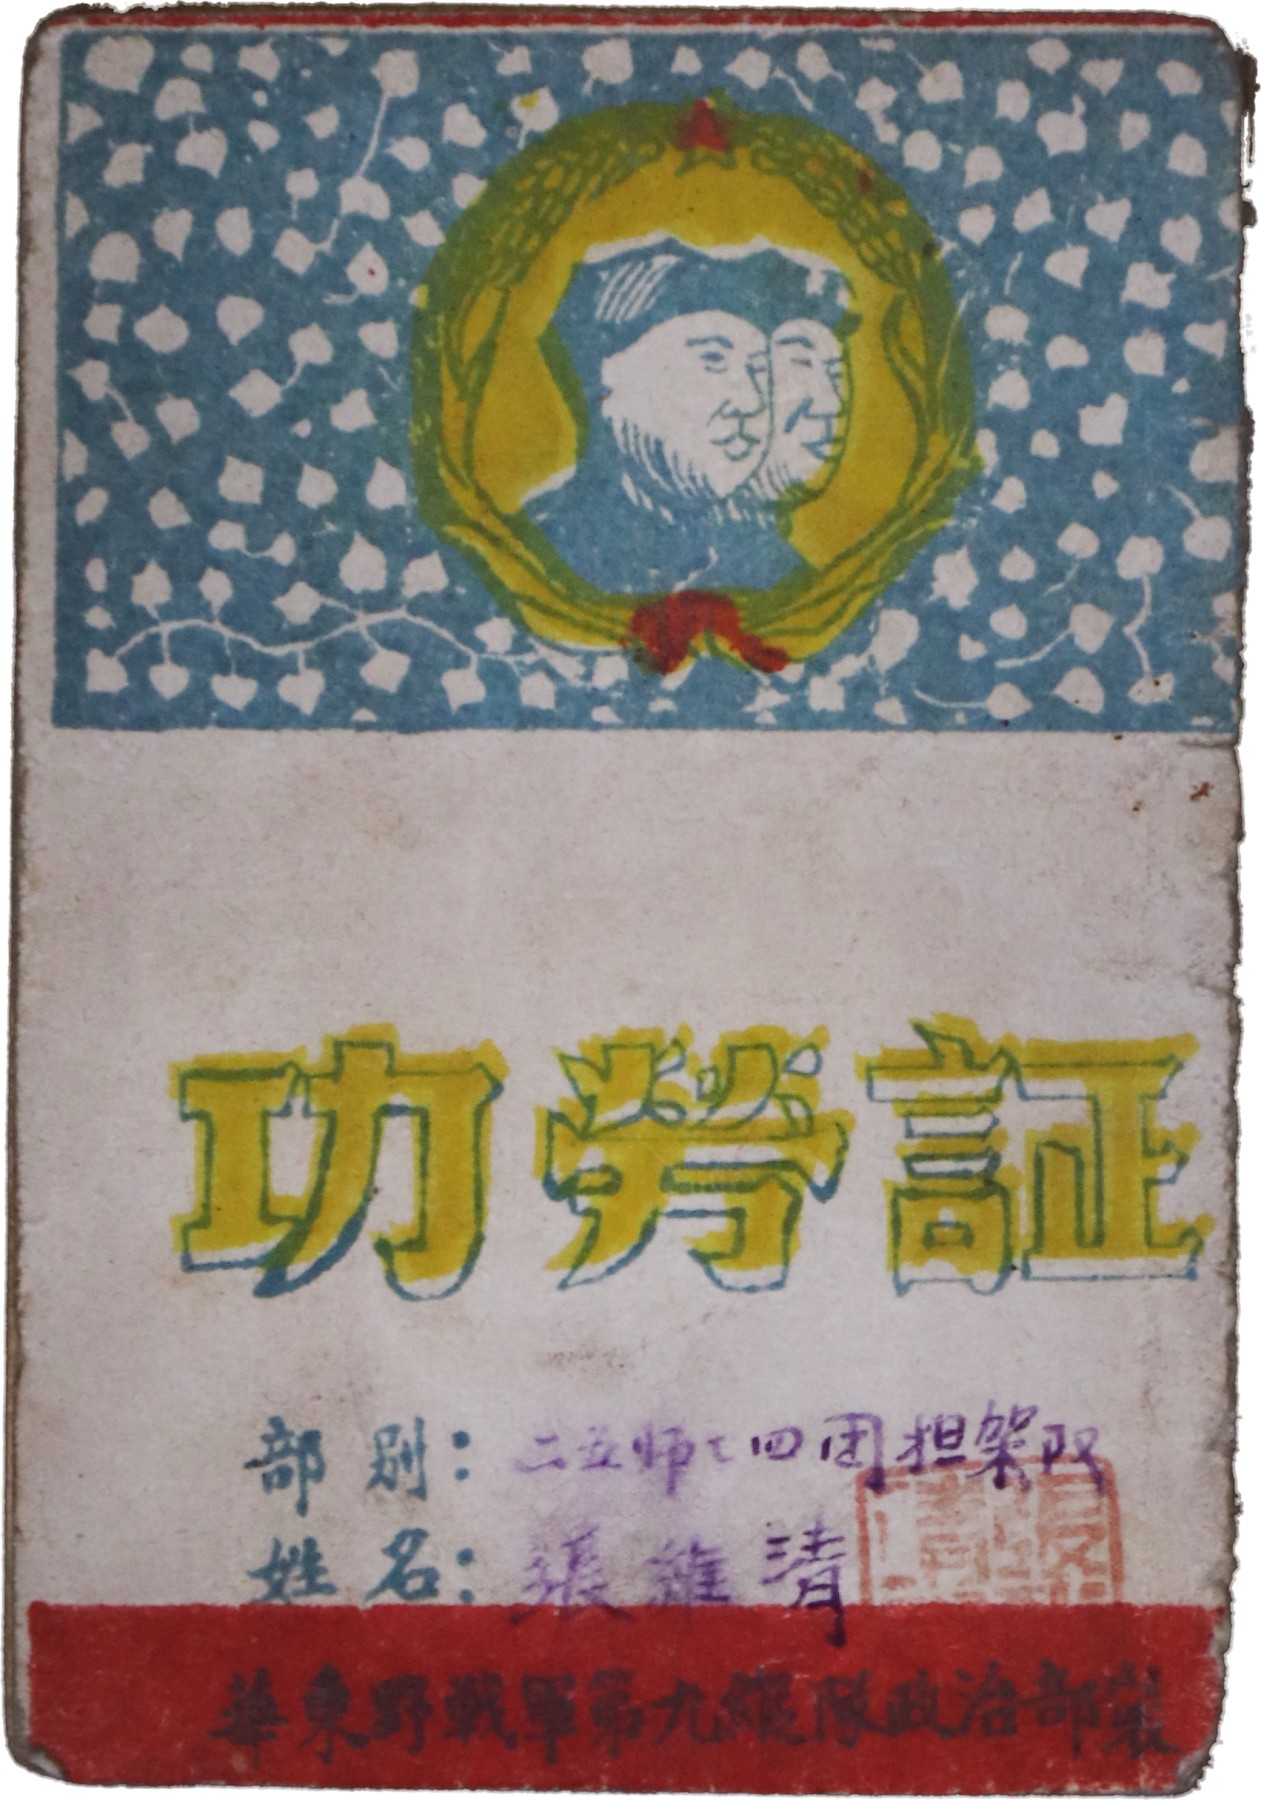 功勞証
部别：二五师七四团担架队
姓名：張維清
華東野戰軍第九縱隊政治部製